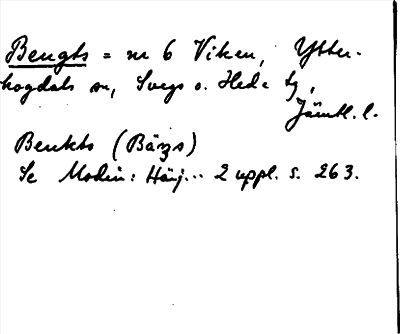 Bengts = nr 6 Viken, Ytter-
hogdals sn, Svegs o. Hede tg,
Jämtl. l.
Benkts (Bäŋs)
Se Modin: Härj... 2 uppl. s. 263.